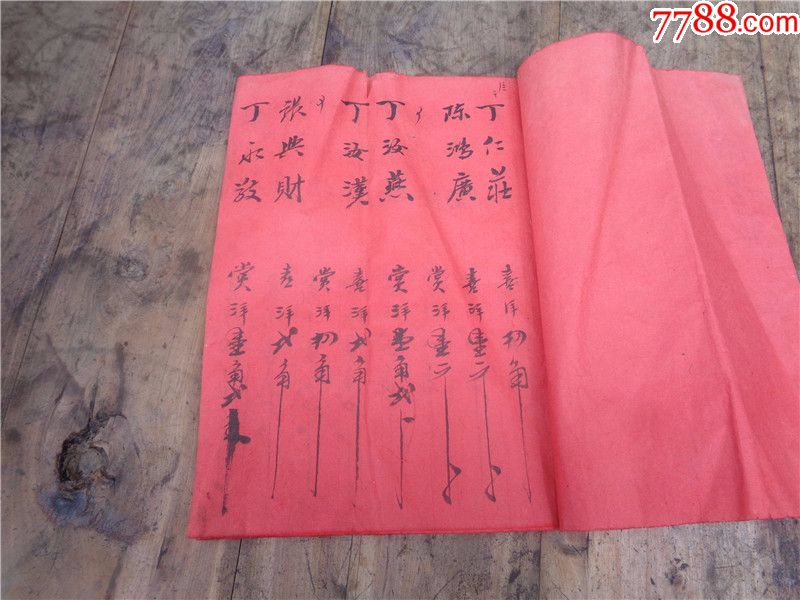 7788.com
丁仁莊
陈鸿廣
丁汝燕
丁汝漢
張興財
丁永敬
喜洋
喜洋壹
賞洋壹
賞洋壹角弍
喜洋弍角
賞洋初角
喜洋弍角
賞洋壹角弍